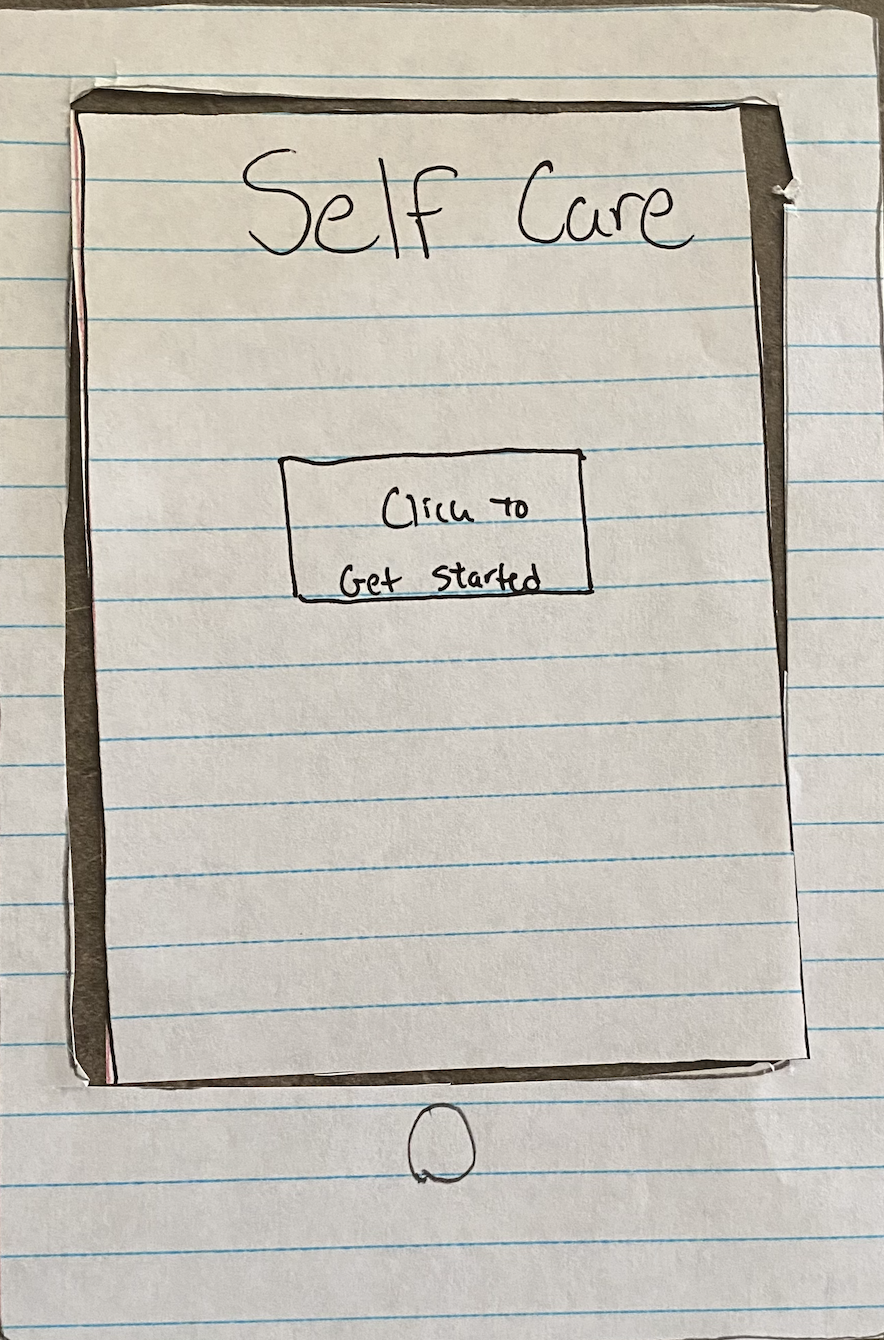 Self Care
Click to
Get started